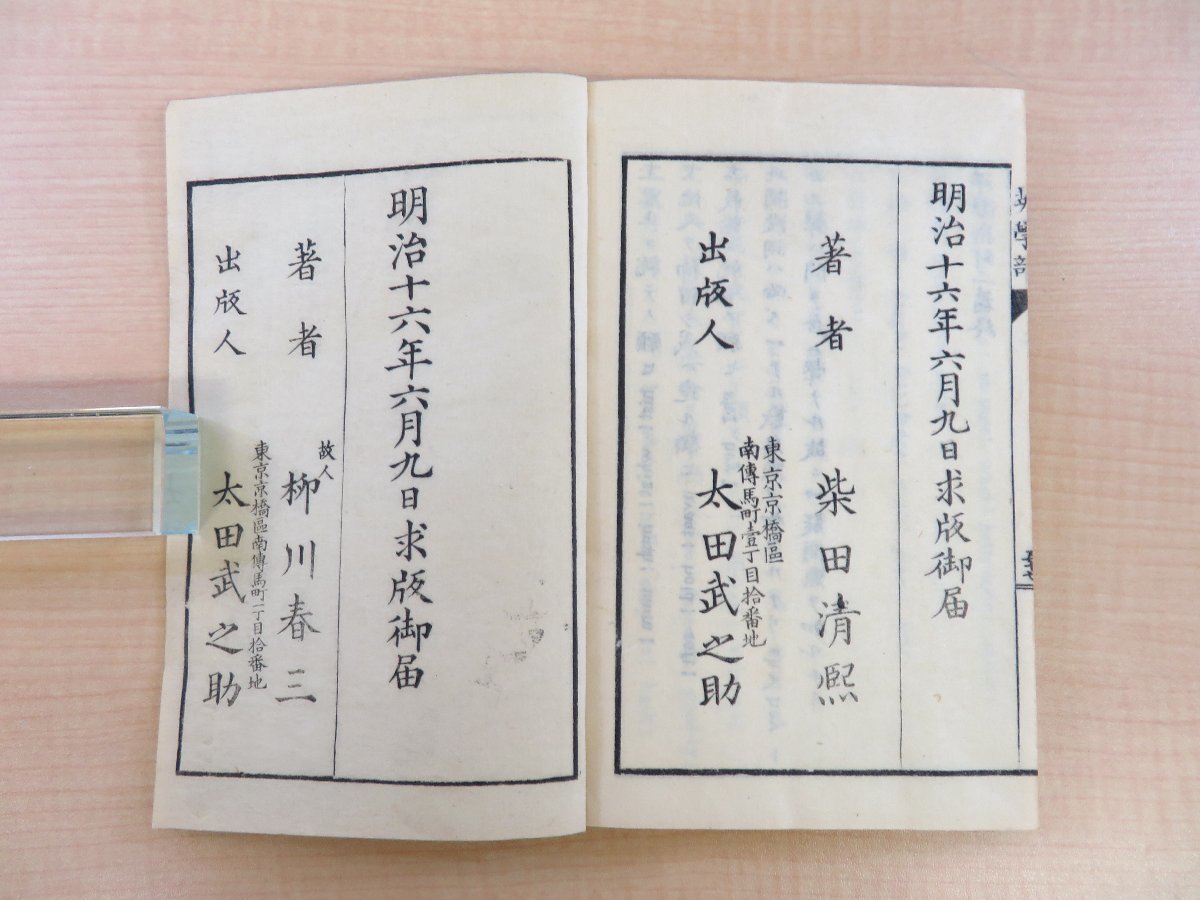 明治十六年六月九日求版御届
著者 柴田清熙
東京京橋區
南傳馬町壹丁目拾番地
出版人 太田武之助
明治十六年六月九日求版御届
著者 故人 柳川春三
東京京橋區南傳馬町一丁目拾番地
出版人 太田武之助